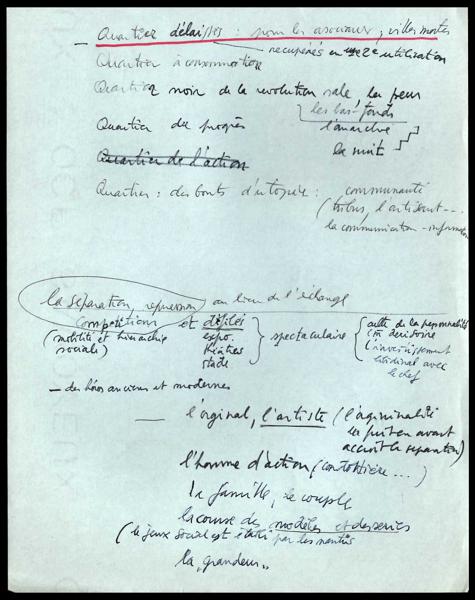 — Quartier délaissés : pour les asociaux, villes mortes
récupérés en 2e utilisation
Quartier à consommation
Quartier noir de la révolution sale la peur
les bas-fonds
Quartier du progrès l'anarchie
la nuit
Quartier de l'action
Quartier : des bouts d'utopie : communauté
(tribus, l'artisanat ...
la communication - information
la séparation, répression, au lieu de l'échange
compétitions et défilés
(mobilité et hiérarchie sociale)
expo
théâtres
stade
spectaculaire
culte de la personnalité
dérisoire
l'investissement
libidinal avec
le chef
— des héros anciens et modernes
— l'original, l'artiste (l'originalité
les put en avant
accroît la séparation)
l'homme d'action (condottière ...)
la famille, le couple
la course des modèles et des séries
(le jeux social est établi par les nantis
la "grandeur"